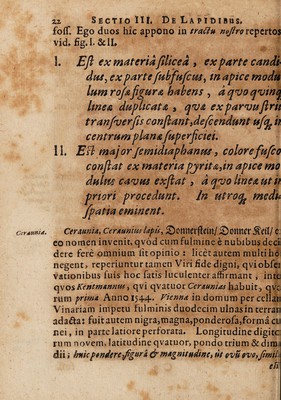 22 SECTIO III. DE LAPIDIBUS.
foss. Ego duos hic appono in tractu nostro repertos
vid. fig. I. & II.
I. Est ex materiâ siliceâ, ex parte candi-
dus, ex parte subfuscus, in apice modu-
lum rosæ figuræ habens, à quo quinq;
lineæ duplicatæ, quæ ex parvu striis
transversis constant, descendunt usq; in
centrum planæ superficiei.
II. Est major semidiaphanus, colore fusco
constat ex materia pyritæ, in apice mo-
dulus cavus exstat, à quo lineæ ut in
priori procedunt. In utroq; media
spatia eminent.
Cerauniæ. Ceraunia, Ceraunius lapis, Donnerstein / Donner Keil / ex
eo nomen invenit, quòd cum fulmine è nubibus deci-
dere ferè omnium sit opinio: licèt autem multi hoc
negent, reperiuntur tamen Viri fide digni, qui obser-
vationibus suis hoc satis luculenter affirmant, inter
quos Kentmannus, qui quatuor Ceraunias habuit, qua-
rum prima Anno 1544. Viennæ in domum per cellam
Vinariam impetu fulminis duodecim ulnas in terram
adacta: fuit autem nigra, magna, ponderosa, formâ cu-
nei, in parte latiore perforata. Longitudine digito-
rum novem, latitudine quatuor, pondo trium & dimi-
dii; huic pondere, figurâ & magnitudine, ut ovũ ovo, similis